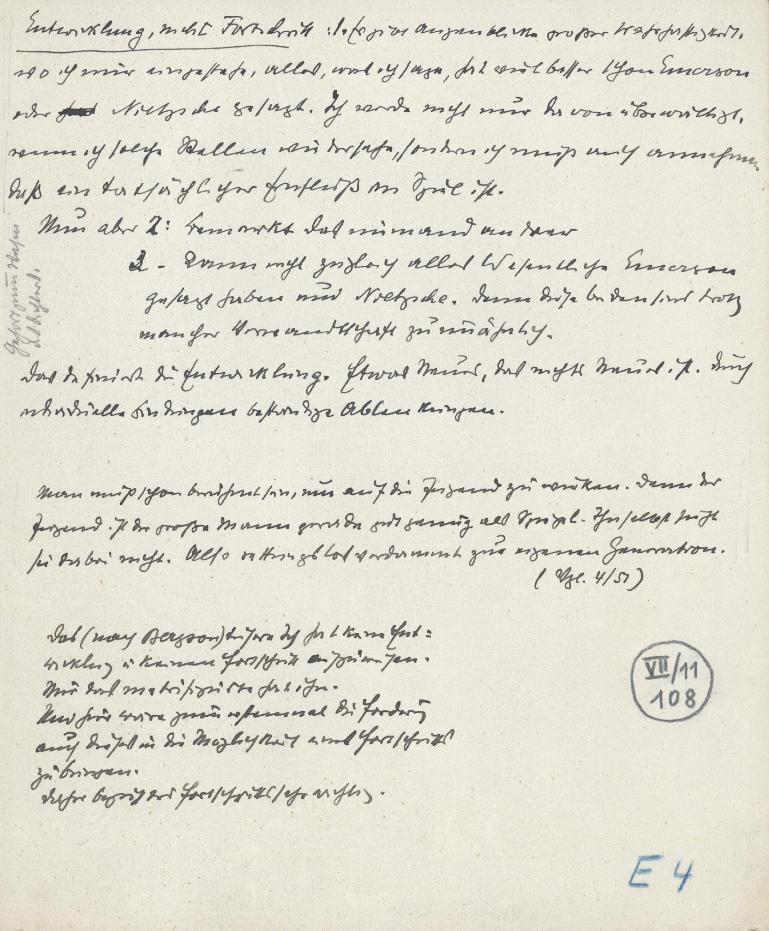 Entwicklung, nicht Fortschritt: 1. Es gibt Augenblicke großer Wahrhaftigkeit,
wo ich mir eingestehe, alles, was ich sage, hat viel besser schon Emerson
oder Nietzsche gesagt. Ich werde nicht nur davon überwältigt,
wenn ich solche Stellen wiedersehe, sondern ich muß auch annehmen
daß ein tatsächlicher Einfluß im Spiel ist.
Nun aber 1: bemerkt das niemand andrer
2 - Kann nicht zugleich alles Wesentliche Emerson
gesagt haben und Nietzsche. Denn diese beiden sind trotz
mancher Verwandtschaft zu unähnlich.
Gehört zum Wesen
des Dichters.
Das definiert die Entwicklung. Etwas Neues, das nichts Neues ist. Durch
individuelle Bindungen beständige Ablenkungen.
Man muß schon berühmt sein, um auf die Jugend zu wirken. Denn der
Jugend ist der große Mann gerade gut genug als Spiegel. Ihn selbst sieht
sie dabei nicht. Also rettungslos verdammt zur eigenen Generation.
(Vgl. 4/51)
Das (nach Bergson) tiefere Ich hat keine Ent=
wicklg u keinen Fortschritt aufzuweisen.
Nur das hat ihn.
Und hier wäre zum erstenmal die Forderg
auch dieses in die Möglichkeit eines Fortschritts
zu bringen.
Daher Begriff des Fortschritts sehr wichtig.
VII/11
108
E 4